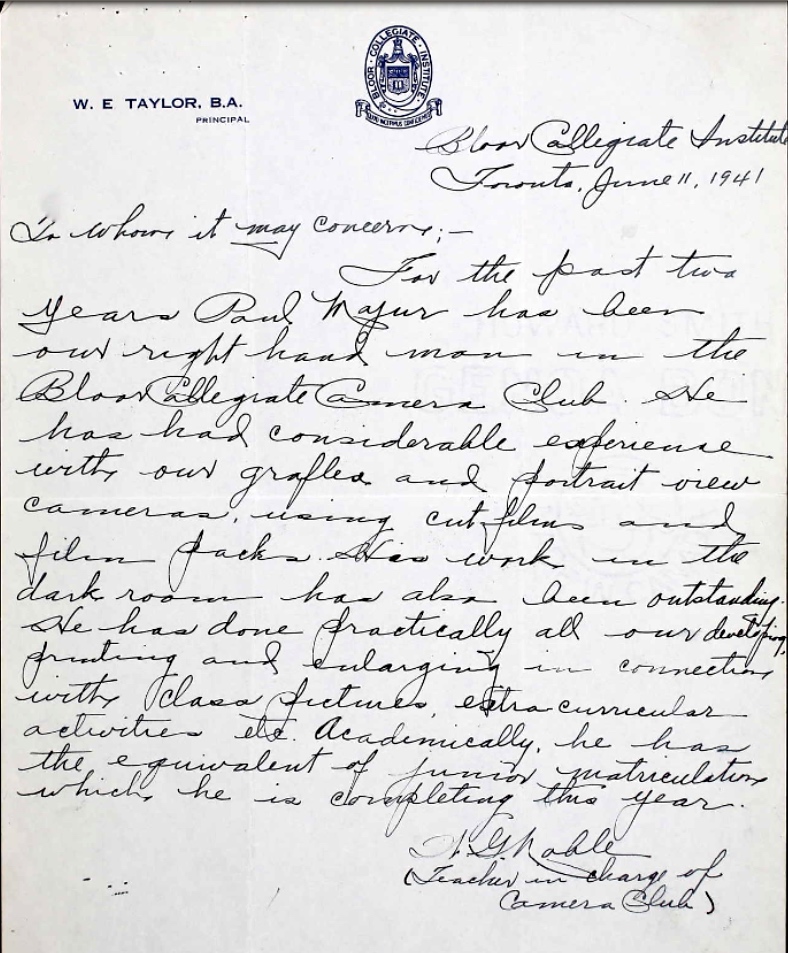 BLOOR · COLLEGIATE · INSTITUTE
W. E TAYLOR, B.A.
PRINCIPAL
Bloor Collegiate Institute
Toronto, June 11, 1941
To whom it may concern;-
For the past two
years Paul Major has been
our right hand man in the
Bloor Collegiate Camera Club. He
has had considerable experience
with our graflex and portrait view
cameras, using cut films and
film packs. His work in the
dark room has also been outstanding.
He has done practically all our developing,
printing and enlarging in connection
with class pictures, extra curricular
activities etc. Academically, he has
the equivalent of junior matriculation
which he is completing this year.
G. Noble
(Teacher in charge of
Camera Club)